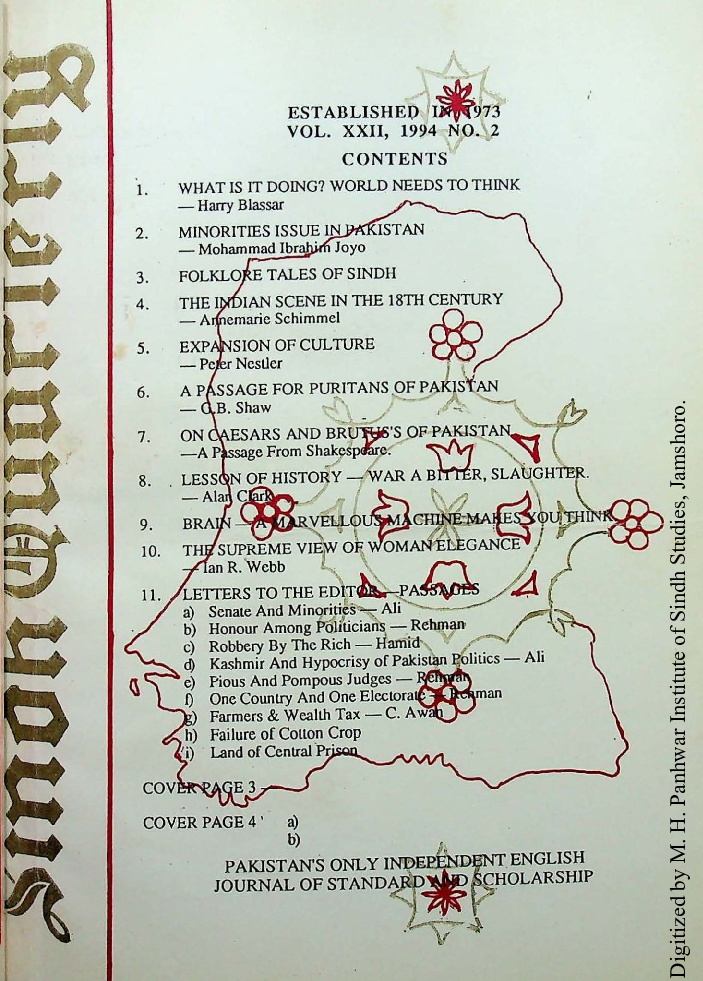 Sindh Quarterly
ESTABLISHED IN 1973
VOL. XXII, 1994 NO. 2
CONTENTS
1. WHAT IS IT DOING? WORLD NEEDS TO THINK
— Harry Blassar
2. MINORITIES ISSUE IN PAKISTAN
— Mohammad Ibrahim Joyo
3. FOLKLORE TALES OF SINDH
4. THE INDIAN SCENE IN THE 18TH CENTURY
— Annemarie Schimmel
5. EXPANSION OF CULTURE
— Peter Nestler
6. A PASSAGE FOR PURITANS OF PAKISTAN
— G.B. Shaw
7. ON CAESARS AND BRUTUS'S OF PAKISTAN
—A Passage From Shakespeare.
8. LESSON OF HISTORY — WAR A BITTER, SLAUGHTER.
— Alan Clark
9. BRAIN — A MARVELLOUS MACHINE MAKES YOU THINK
10. THE SUPREME VIEW OF WOMAN ELEGANCE
— Ian R. Webb
11. LETTERS TO THE EDITOR —PASSAGES
a) Senate And Minorities — Ali
b) Honour Among Politicians — Rehman
c) Robbery By The Rich — Hamid
d) Kashmir And Hypocrisy of Pakistan Politics — Ali
e) Pious And Pompous Judges — Rehman
f) One Country And One Electorate — Rehman
g) Farmers & Wealth Tax — C. Awan
h) Failure of Cotton Crop
i) Land of Central Prison
COVER PAGE 3 —
COVER PAGE 4 a)
b)
PAKISTAN'S ONLY INDEPENDENT ENGLISH
JOURNAL OF STANDARD AND SCHOLARSHIP
Digitized by M. H. Panhwar Institute of Sindh Studies, Jamshoro.